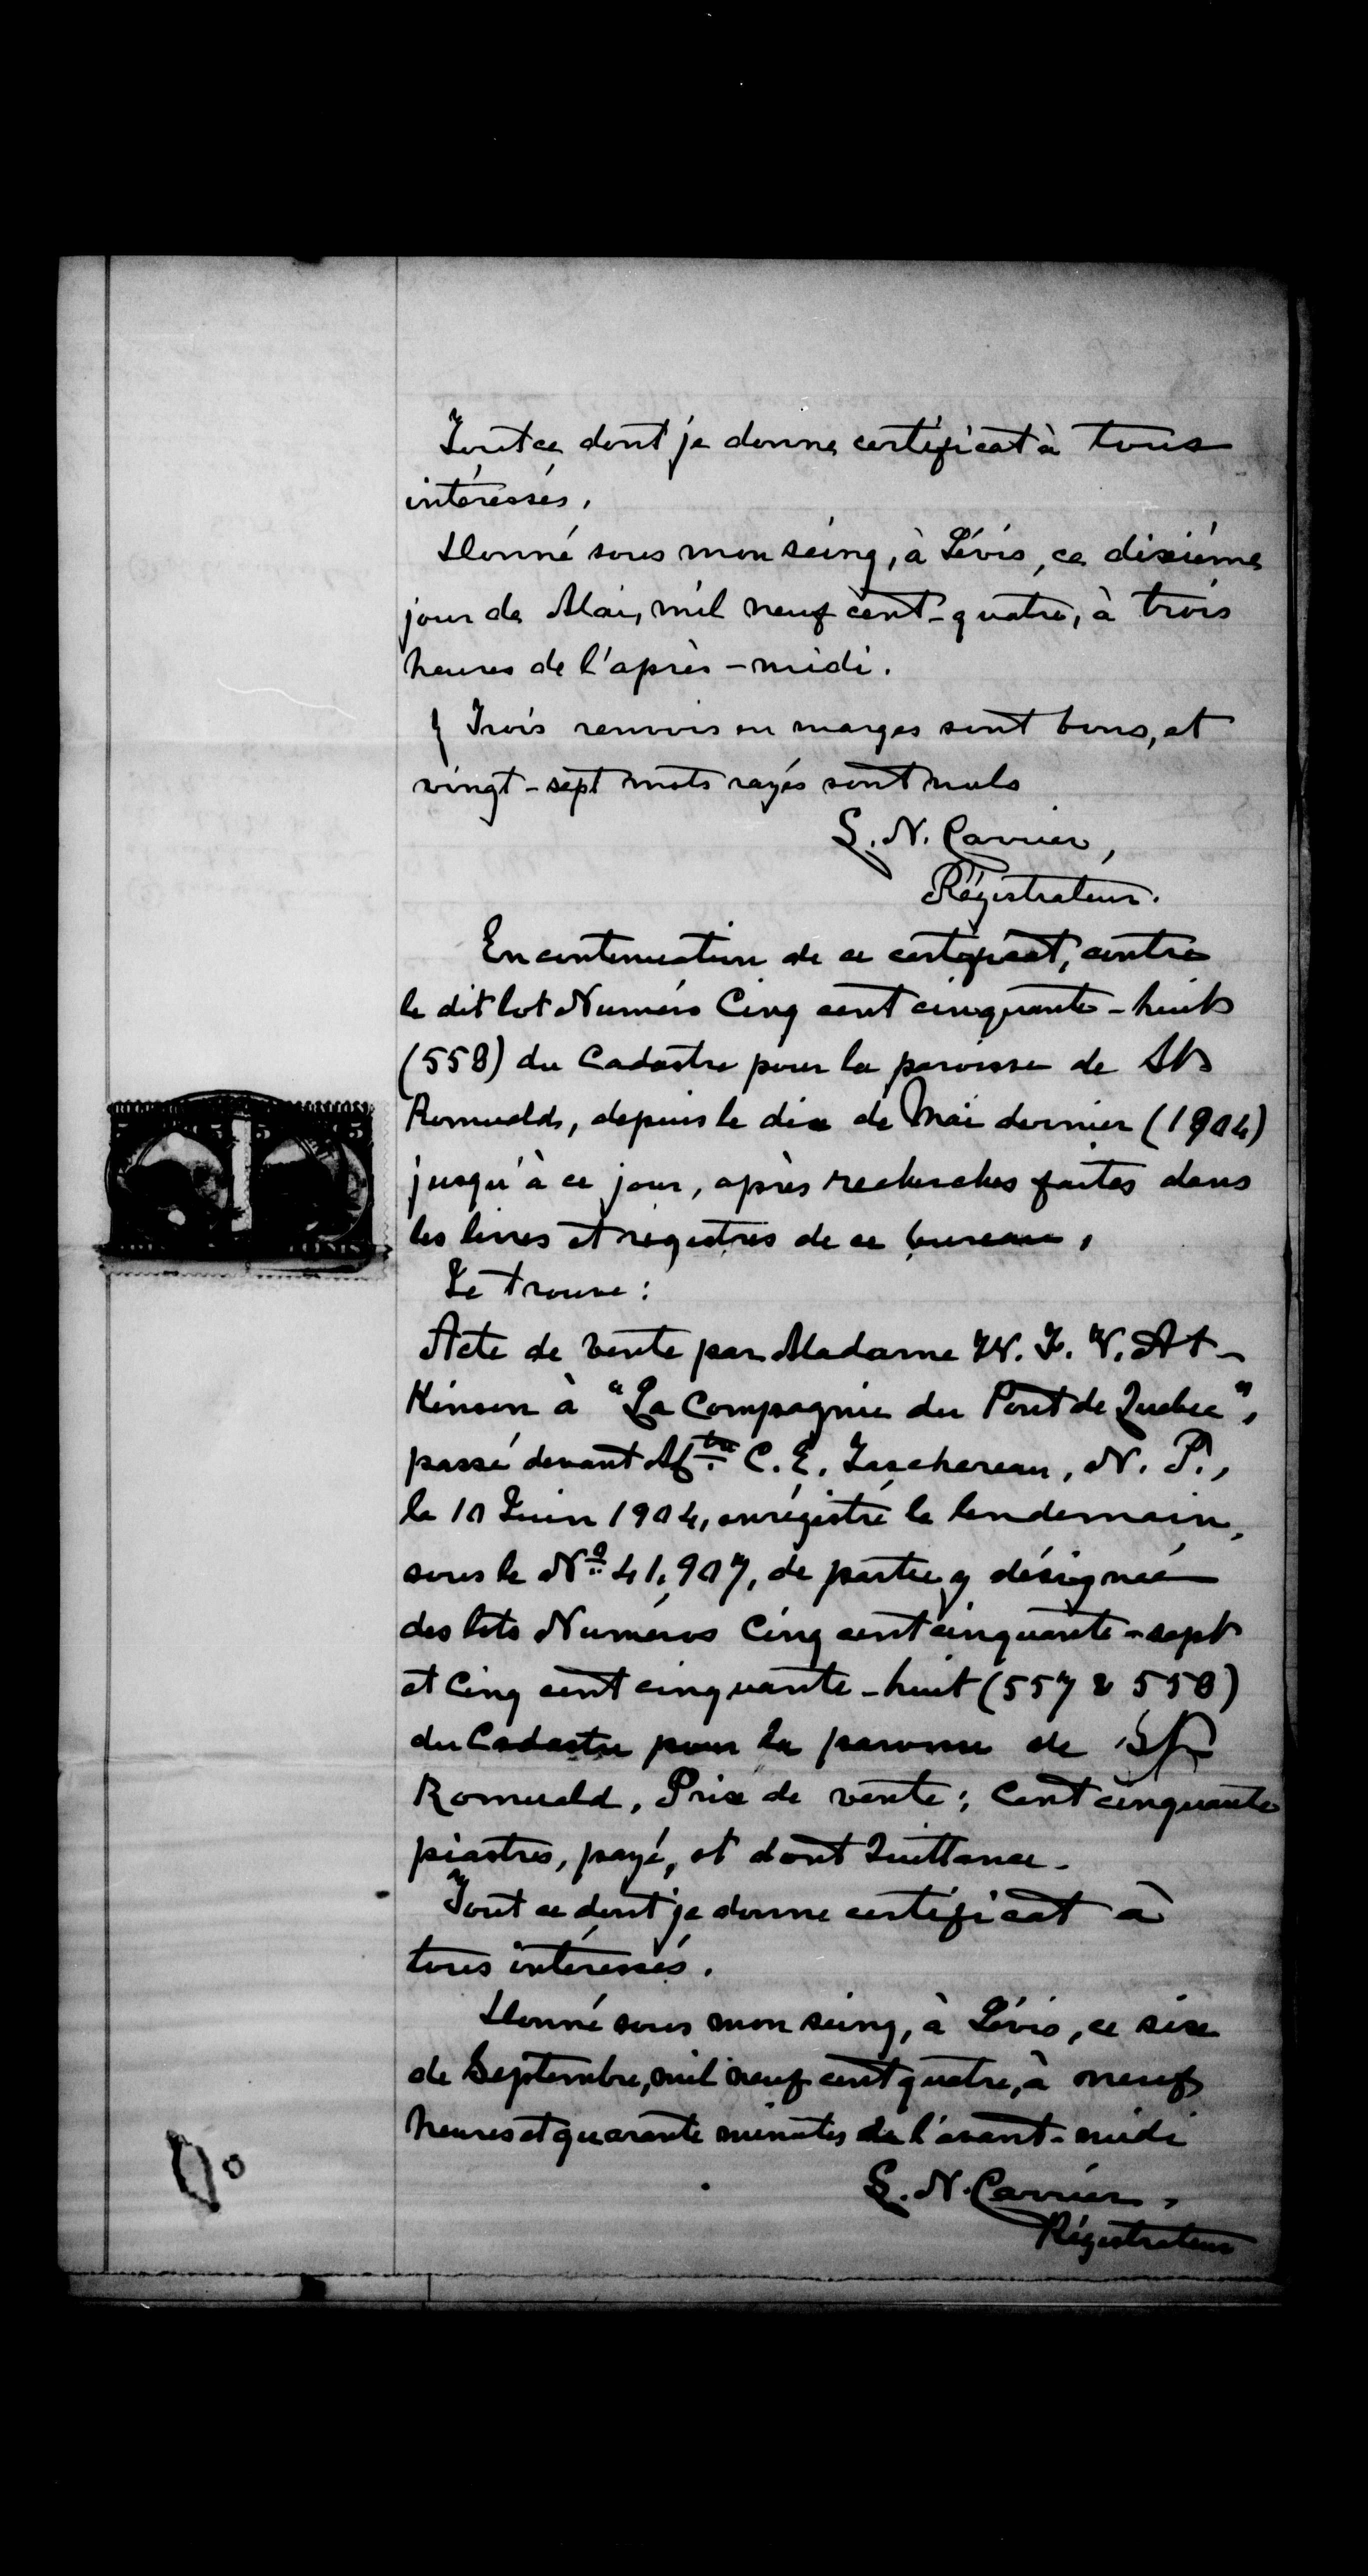 Tout ce dont je donne certificat à tous
intéressés.
Donné sous mon seing, à Lévis, ce dixième
jour de Mai, mil neuf cent-quatre, à trois
heures de l'après-midi.
Trois renvois en marges sont bons, et
vingt-sept mots rayés sont nuls
L. N. Carrier,
Régistrateur.
En continuation de ce certificat, contre
le dit lot Numéro Cinq cent cinquante-huit
(558) du Cadastre pour la paroisse de St
Romuald, depuis le dix de Mai dernier (1904)
jusqu'à ce jour, après recherches faites dans
les livres et régistres de ce bureau,
Je trouve :
Acte de vente par Madame W. F. V. At-
Kinson à "La Compagnie du Pont de Québec",
passé devant Mtre C. E. Taschereau, N. P.,
le 10 Juin 1904, enrégistré le lendemain,
sous le No 41,907, de partie y désignée
des lots Numéros Cinq cent cinquante-sept
et Cinq cent cinquante-huit (557 & 558)
du Cadastre pour la paroisse de St
Romuald. Prix de vente ; Cent cinquante
piastres, payé, et dont Quittance.
Tout ce dont je donne certificat à
tous intéressés.
Donné sous mon seing, à Lévis, ce six
de Septembre, mil neuf cent quatre, à neuf
heures et quarante minutes de l'avant-midi
L. N. Carrier,
Régistrateur